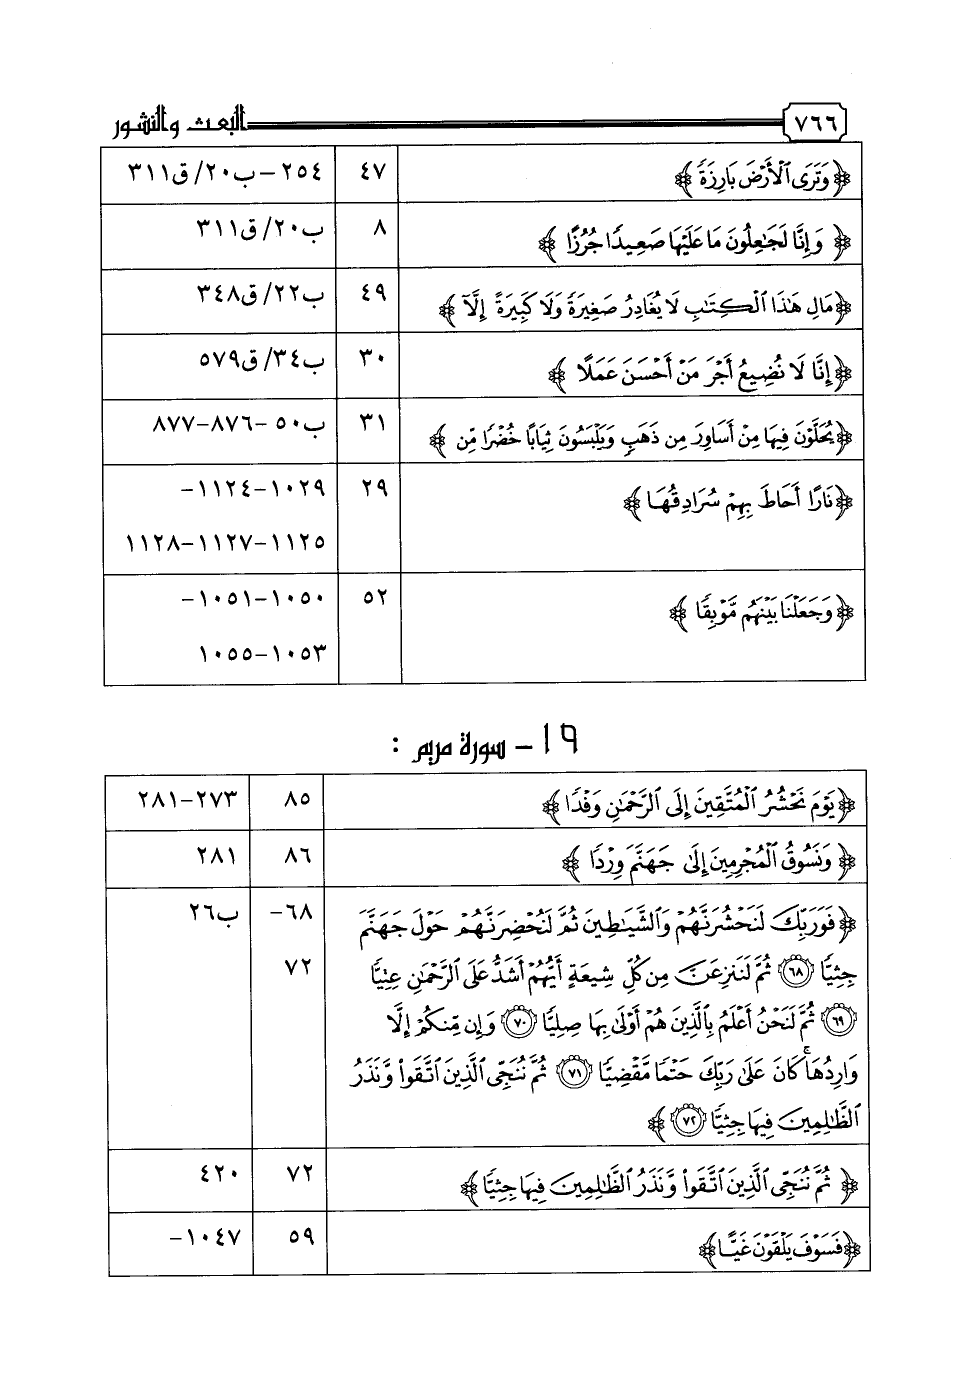 ٧٦٦ البعث والنشور
﴿وَتَرَى ٱلْأَرْضَ بَارِزَةً﴾ ٤٧ ٢٥٤ – ب٢٠/ ق٣١١
﴿ وَإِنَّا لَجَٰعِلُونَ مَا عَلَيْهَا صَعِيدًا جُرُزًا ﴾ ٨ ب٢٠/ ق٣١١
﴿مَالِ هَٰذَا ٱلْكِتَٰبِ لَا يُغَادِرُ صَغِيرَةً وَلَا كَبِيرَةً إِلَّآ ﴾ ٤٩ ب٢٢/ ق٣٤٨
﴿إِنَّا لَا نُضِيعُ أَجْرَ مَنْ أَحْسَنَ عَمَلًا ﴾ ٣٠ ب٣٤/ ق٥٧٩
﴿يُحَلَّوْنَ فِيهَا مِنْ أَسَاوِرَ مِن ذَهَبٍ وَيَلْبَسُونَ ثِيَابًا خُضْرًا مِّن ﴾ ٣١ ب٥٠ –٨٧٦–٨٧٧
﴿نَارًا أَحَاطَ بِهِمْ سُرَادِقُهَا ﴾ ٢٩ ١٠٢٩–١١٢٤–
١١٢٥–١١٢٧–١١٢٨
﴿وَجَعَلْنَا بَيْنَهُم مَّوْبِقًا ﴾ ٥٢ ١٠٥٠–١٠٥١–
١٠٥٣–١٠٥٥
١٩ – سورة مريم :
﴿يَوْمَ نَحْشُرُ ٱلْمُتَّقِينَ إِلَى ٱلرَّحْمَٰنِ وَفْدًا ﴾ ٨٥ ٢٧٣–٢٨١
﴿ وَنَسُوقُ ٱلْمُجْرِمِينَ إِلَىٰ جَهَنَّمَ وِرْدًا ﴾ ٨٦ ٢٨١
﴿فَوَرَبِّكَ لَنَحْشُرَنَّهُمْ وَٱلشَّيَٰطِينَ ثُمَّ لَنُحْضِرَنَّهُمْ حَوْلَ جَهَنَّمَ ٦٨– ب٢٦
جِثِيًّا ٦٨ ثُمَّ لَنَنزِعَنَّ مِن كُلِّ شِيعَةٍ أَيُّهُمْ أَشَدُّ عَلَى ٱلرَّحْمَٰنِ عِتِيًّا ٧٢
٦٩ ثُمَّ لَنَحْنُ أَعْلَمُ بِٱلَّذِينَ هُمْ أَوْلَىٰ بِهَا صِلِيًّا ٧٠ وَإِن مِّنكُمْ إِلَّا
وَارِدُهَا ۚ كَانَ عَلَىٰ رَبِّكَ حَتْمًا مَّقْضِيًّا ٧١ ثُمَّ نُنَجِّى ٱلَّذِينَ ٱتَّقَوا۟ وَّنَذَرُ
ٱلظَّٰلِمِينَ فِيهَا جِثِيًّا ٧٢ ﴾
﴿ ثُمَّ نُنَجِّى ٱلَّذِينَ ٱتَّقَوا۟ وَّنَذَرُ ٱلظَّٰلِمِينَ فِيهَا جِثِيًّا ﴾ ٧٢ ٤٢٠
﴿فَسَوْفَ يَلْقَوْنَ غَيًّا ﴾ ٥٩ ١٠٤٧–